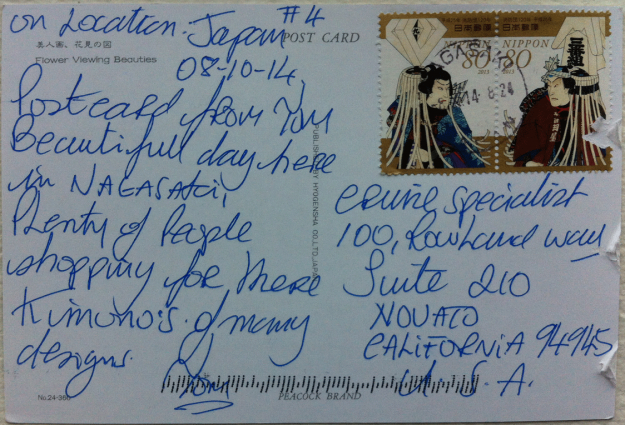 on Location: Japan #4
POST CARD
美人画、花見の図
Flower Viewing Beauties
08-10-14,
Postcard from Tom
Beautiful day here
in NAGASAKI,
Plenty of People
shopping for there
Kimono's of many
designs.
Tom
PUBLISHED BY HYOGENSHA CO., LTD. JAPAN
日本郵便
NIPPON
80
2013
日本郵便
NIPPON
80
2013
NAGASAKI
14.8.24
cruise specialist
100, Rowland way
Suite 210
NOVATO
CALIFORNIA 94945
U.S.A.
No.24-366
PEACOCK BRAND